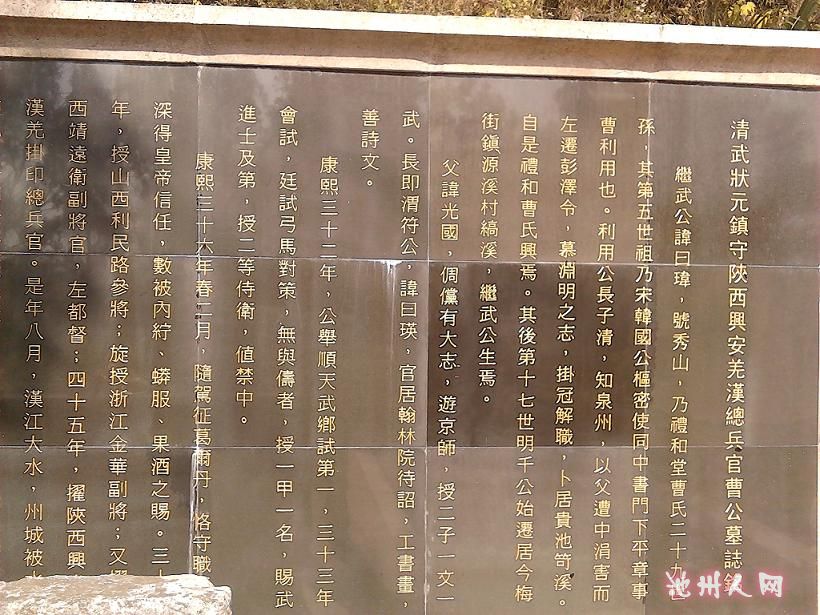 清武狀元鎮守陝西興安羌漢總兵官曹公墓誌銘
繼武公諱曰瑋，號秀山，乃禮和堂曹氏二十九
孫，其第五世祖乃宋韓國公樞密使同中書門下平章事
曹利用也。利用公長子清，知泉州，以父遭中涓害而
左遷彭澤令，慕淵明之志，掛冠解職，卜居貴池笴溪。
自是禮和曹氏興焉。其後第十七世明千公始遷居今梅
街鎮源溪村縞溪，繼武公生焉。
父諱光國，倜儻有大志，遊京師，授二子一文一
武。長即渭符公，諱曰瑛，官居翰林院待詔，工書畫，
善詩文。
康熙三十二年，公舉順天武鄉試第一，三十三年
會試，廷試弓馬對策，無與儔者，授一甲一名，賜武
進士及第，授二等侍衛，值禁中。
康熙三十六年春二月，隨駕征葛爾丹，恪守職
深得皇帝信任，數被內紵、蟒服、果酒之賜。三十
年，授山西利民路參將；旋授浙江金華副將；又擢
西靖遠衛副將官，左都督；四十五年，擢陝西興
漢羌掛印總兵官。是年八月，漢江大水，州城被
池州人网